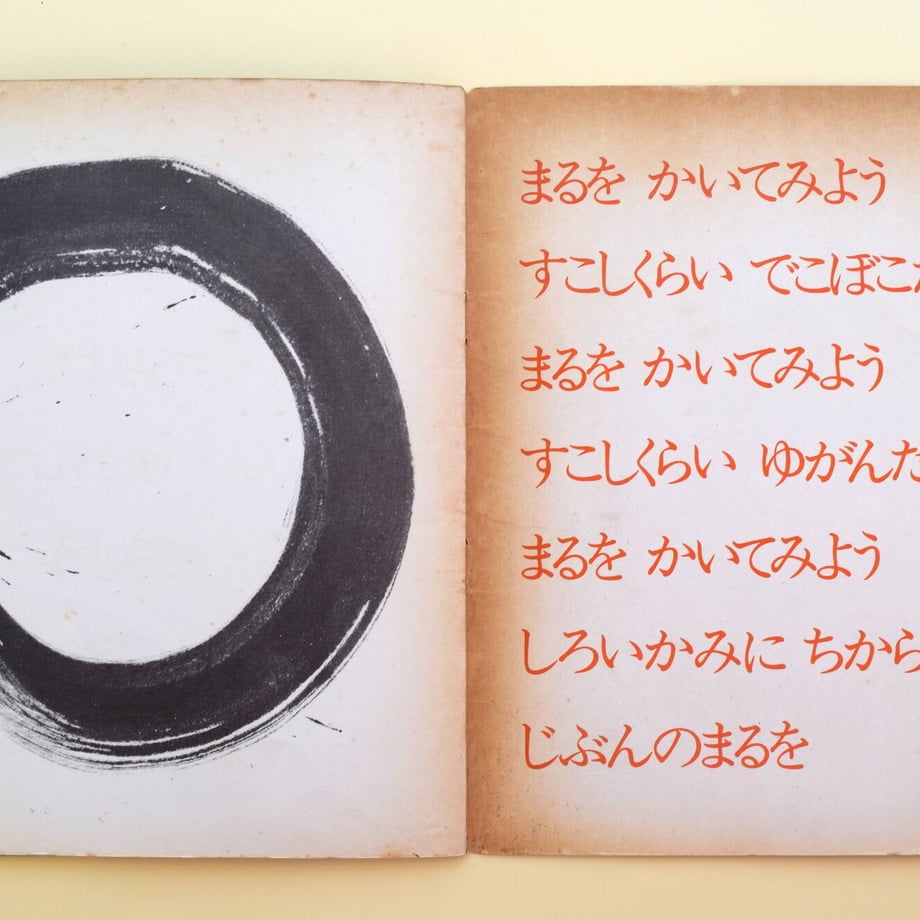 まるを かいてみよう
すこしくらい でこぼこ
まるを かいてみよう
すこしくらい ゆがんだ
まるを かいてみよう
しろいかみに ちから
じぶんのまるを